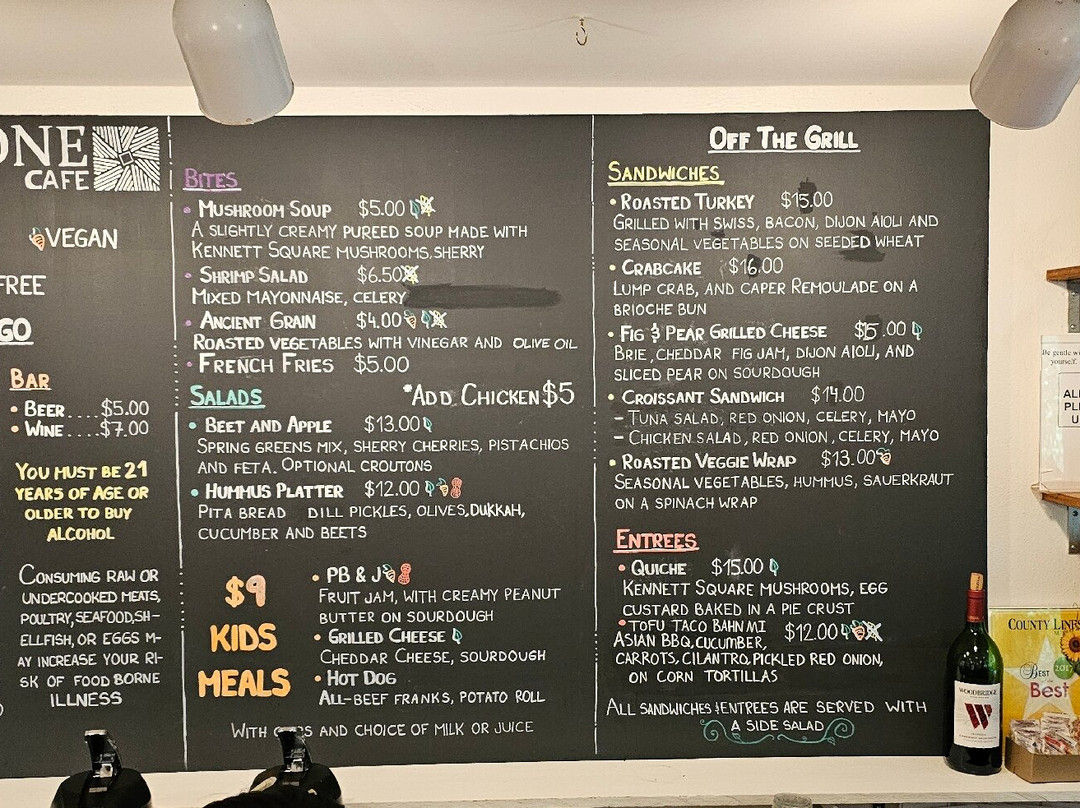 ONE
CAFE
VEGAN
FREE
GO
BAR
• BEER....$5.00
• WINE....$7.00
YOU MUST BE 21
YEARS OF AGE OR
OLDER TO BUY
ALCOHOL
CONSUMING RAW OR
UNDERCOOKED MEATS,
POULTRY,SEAFOOD,SH-
ELLFISH, OR EGGS M-
AY INCREASE YOUR RI-
SK OF FOOD BORNE
ILLNESS
BITES
• MUSHROOM SOUP $5.00
A SLIGHTLY CREAMY PUREED SOUP MADE WITH
KENNETT SQUARE MUSHROOMS, SHERRY
• SHRIMP SALAD $6.50
MIXED MAYONNAISE, CELERY
• ANCIENT GRAIN $4.00
ROASTED VEGETABLES WITH VINEGAR AND OLIVE OIL
• FRENCH FRIES $5.00
SALADS *ADD CHICKEN $5
• BEET AND APPLE $13.00
SPRING GREENS MIX, SHERRY CHERRIES, PISTACHIOS
AND FETA. OPTIONAL CROUTONS
• HUMMUS PLATTER $12.00
PITA BREAD DILL PICKLES, OLIVES, DUKKAH,
CUCUMBER AND BEETS
$9
KIDS
MEALS
• PB & J
FRUIT JAM, WITH CREAMY PEANUT
BUTTER ON SOURDOUGH
• GRILLED CHEESE
CHEDDAR CHEESE, SOURDOUGH
• HOT DOG
ALL-BEEF FRANKS, POTATO ROLL
WITH AND CHOICE OF MILK OR JUICE
OFF THE GRILL
SANDWICHES
• ROASTED TURKEY $15.00
GRILLED WITH SWISS, BACON, DIJON AIOLI AND
SEASONAL VEGETABLES ON SEEDED WHEAT
• CRABCAKE $16.00
LUMP CRAB, AND CAPER REMOULADE ON A
BRIOCHE BUN
• FIG & PEAR GRILLED CHEESE $15.00
BRIE, CHEDDAR FIG JAM, DIJON AIOLI, AND
SLICED PEAR ON SOURDOUGH
• CROISSANT SANDWICH $14.00
- TUNA SALAD, RED ONION, CELERY, MAYO
- CHICKEN SALAD, RED ONION, CELERY, MAYO
• ROASTED VEGGIE WRAP $13.00
SEASONAL VEGETABLES, HUMMUS, SAUERKRAUT
ON A SPINACH WRAP
ENTREES
• QUICHE $15.00
KENNETT SQUARE MUSHROOMS, EGG
CUSTARD BAKED IN A PIE CRUST
• TOFU TACO BAHN MI $12.00
ASIAN BBQ, CUCUMBER,
CARROTS, CILANTRO, PICKLED RED ONION,
ON CORN TORTILLAS
ALL SANDWICHES & ENTREES ARE SERVED WITH
A SIDE SALAD
WOODBRIDGE
W
COUNTY LINES
Best 2017
Best
Be gentle
yourself.